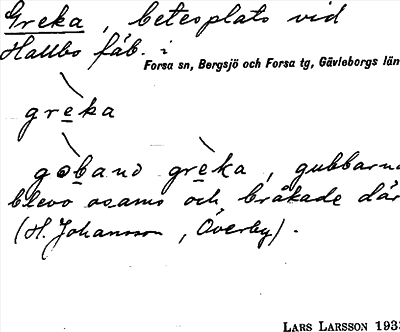 Greka, betesplats vid
Hallbo fäb. i
Forsa sn, Bergsjö och Forsa tg, Gävleborgs län
greka
gobano greka, gubbarna
blevo osams och bråkade där
(H. Johansson, Överby).
LARS LARSSON 193